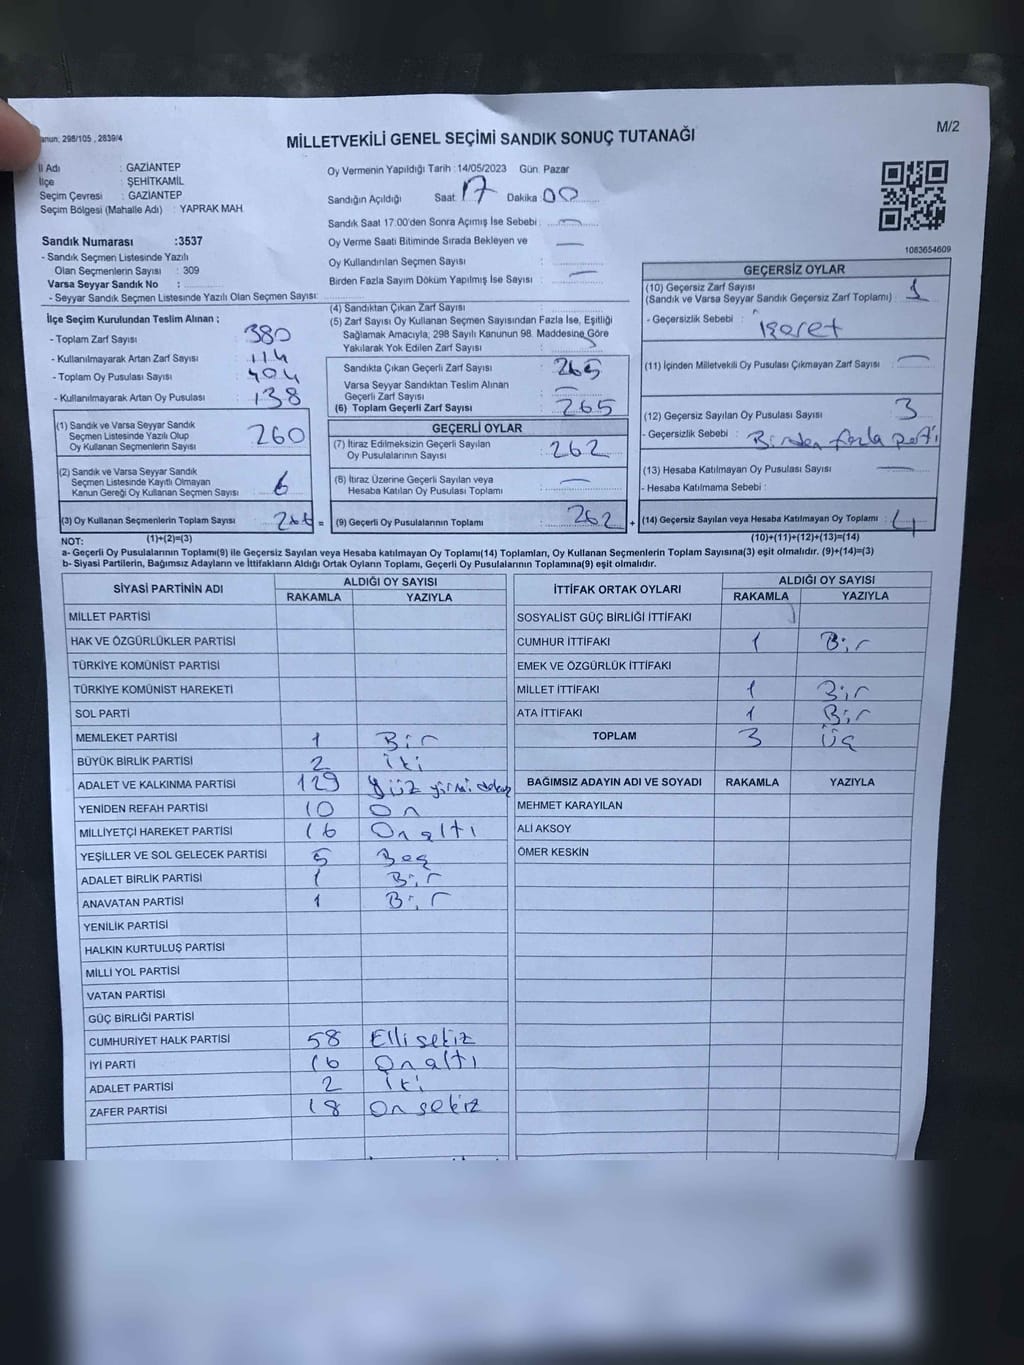 anun: 298/105 , 2839/4
MİLLETVEKİLİ GENEL SEÇİMİ SANDIK SONUÇ TUTANAĞI
M/2
İl Adı : GAZİANTEP
İlçe : ŞEHİTKAMİL
Seçim Çevresi : GAZİANTEP
Seçim Bölgesi (Mahalle Adı) : YAPRAK MAH.
Sandık Numarası :3537
- Sandık Seçmen Listesinde Yazılı
Olan Seçmenlerin Sayısı : 309
Varsa Seyyar Sandık No :
- Seyyar Sandık Seçmen Listesinde Yazılı Olan Seçmen Sayısı:
Oy Vermenin Yapıldığı Tarih : 14/05/2023 Gün: Pazar
Sandığın Açıldığı Saat 17 Dakika 00
Sandık Saat 17.00'den Sonra Açımış İse Sebebi : —
Oy Verme Saati Bitiminde Sırada Bekleyen ve —
Oy Kullandırılan Seçmen Sayısı :
Birden Fazla Sayım Döküm Yapılmış İse Sayısı : —
1083654609
İlçe Seçim Kurulundan Teslim Alınan ;
- Toplam Zarf Sayısı : 380
- Kullanılmayarak Artan Zarf Sayısı : 114
- Toplam Oy Pusulası Sayısı : 404
- Kullanılmayarak Artan Oy Pusulası : 138
(1) Sandık ve Varsa Seyyar Sandık
Seçmen Listesinde Yazılı Olup
Oy Kullanan Seçmenlerin Sayısı 260
(2) Sandık ve Varsa Seyyar Sandık
Seçmen Listesinde Kayıtlı Olmayan
Kanun Gereği Oy Kullanan Seçmen Sayısı 6
(3) Oy Kullanan Seçmenlerin Toplam Sayısı 266 =
(1)+(2)=(3)
(4) Sandıktan Çıkan Zarf Sayısı :
(5) Zarf Sayısı Oy Kullanan Seçmen Sayısından Fazla İse, Eşitliği
Sağlamak Amacıyla, 298 Sayılı Kanunun 98. Maddesine Göre
Yakılarak Yok Edilen Zarf Sayısı :
Sandıkta Çıkan Geçerli Zarf Sayısı : 265
Varsa Seyyar Sandıktan Teslim Alınan
Geçerli Zarf Sayısı : —
(6) Toplam Geçerli Zarf Sayısı : 265
GEÇERLİ OYLAR
(7) İtiraz Edilmeksizin Geçerli Sayılan
Oy Pusulalarının Sayısı : 262
(8) İtiraz Üzerine Geçerli Sayılan veya
Hesaba Katılan Oy Pusulası Toplamı : —
(9) Geçerli Oy Pusulalarının Toplamı : 262 +
GEÇERSİZ OYLAR
(10) Geçersiz Zarf Sayısı
(Sandık ve Varsa Seyyar Sandık Geçersiz Zarf Toplamı) : 1
- Geçersizlik Sebebi : İşaret
(11) İçinden Milletvekili Oy Pusulası Çıkmayan Zarf Sayısı : —
(12) Geçersiz Sayılan Oy Pusulası Sayısı : 3
- Geçersizlik Sebebi : Birden fazla parti
(13) Hesaba Katılmayan Oy Pusulası Sayısı : —
- Hesaba Katılmama Sebebi :
(14) Geçersiz Sayılan veya Hesaba Katılmayan Oy Toplamı : 4
(10)+(11)+(12)+(13)=(14)
NOT:
a- Geçerli Oy Pusulalarının Toplamı(9) ile Geçersiz Sayılan veya Hesaba katılmayan Oy Toplamı(14) Toplamları, Oy Kullanan Seçmenlerin Toplam Sayısına(3) eşit olmalıdır. (9)+(14)=(3)
b- Siyasi Partilerin, Bağımsız Adayların ve İttifakların Aldığı Ortak Oyların Toplamı, Geçerli Oy Pusulalarının Toplamına(9) eşit olmalıdır.
SİYASİ PARTİNİN ADI ALDIĞI OY SAYISI
RAKAMLA YAZIYLA
MİLLET PARTİSİ
HAK VE ÖZGÜRLÜKLER PARTİSİ
TÜRKİYE KOMÜNİST PARTİSİ
TÜRKİYE KOMÜNİST HAREKETİ
SOL PARTİ
MEMLEKET PARTİSİ 1 Bir
BÜYÜK BİRLİK PARTİSİ 2 İki
ADALET VE KALKINMA PARTİSİ 129 Yüz yirmi dokuz
YENİDEN REFAH PARTİSİ 10 On
MİLLİYETÇİ HAREKET PARTİSİ 16 On altı
YEŞİLLER VE SOL GELECEK PARTİSİ 5 Beş
ADALET BİRLİK PARTİSİ 1 Bir
ANAVATAN PARTİSİ 1 Bir
YENİLİK PARTİSİ
HALKIN KURTULUŞ PARTİSİ
MİLLİ YOL PARTİSİ
VATAN PARTİSİ
GÜÇ BİRLİĞİ PARTİSİ
CUMHURİYET HALK PARTİSİ 58 Elli sekiz
İYİ PARTİ 16 On altı
ADALET PARTİSİ 2 İki
ZAFER PARTİSİ 18 On sekiz
İTTİFAK ORTAK OYLARI ALDIĞI OY SAYISI
RAKAMLA YAZIYLA
SOSYALİST GÜÇ BİRLİĞİ İTTİFAKI
CUMHUR İTTİFAKI 1 Bir
EMEK VE ÖZGÜRLÜK İTTİFAKI
MİLLET İTTİFAKI 1 Bir
ATA İTTİFAKI 1 Bir
TOPLAM 3 Üç
BAĞIMSIZ ADAYIN ADI VE SOYADI RAKAMLA YAZIYLA
MEHMET KARAYILAN
ALİ AKSOY
ÖMER KESKİN